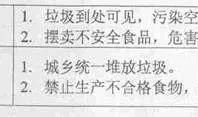 1. 垃圾到处可见，污染空
2. 摆卖不安全食品，危害
1. 城乡统一堆放垃圾。
2. 禁止生产不合格食物，